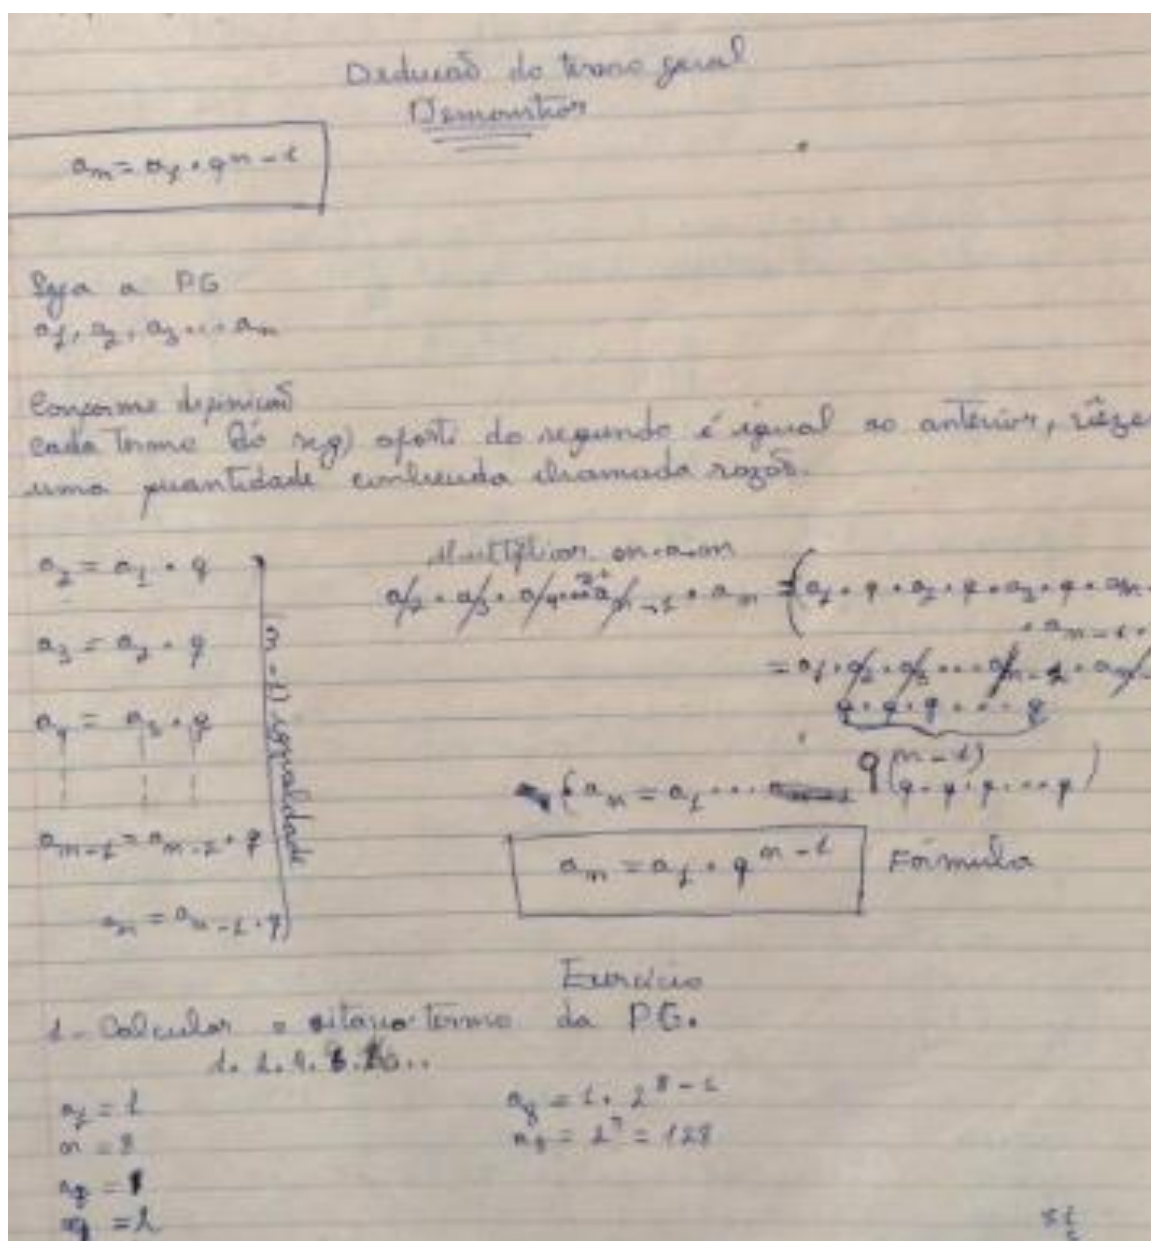 Dedução do termo geral
Demonstrar
an = a1 . q n - 1
Seja a PG
a1, a2, a3 ... an
Conforme definição
cada termo (do seg) aparti do segundo é igual ao anterior, vêzes
uma quantidade conhecida chamada razão.
a2 = a1 . q
a3 = a2 . q
a4 = a3 . q
an-1 = an-2 . q
an = an-1 . q
(n-1) igualdade
Multiplicar m.a.m
a2 . a3 . a4 ... an-1 . an = (a1 . q . a2 . q . a3 . q . an
. an-1 .
= a1 . a2 . a3 ... an-2 . an
q . q . q ... q
q (n-1)
(an = a1 ... (q . q . q ... q)
an = a1 . q n-1 Fórmula
Exercício
1 - Calcular o oitavo termo da PG.
1. 2. 4. 8. 16..
a1 = 1
n = 8
a8 = 1 . 2 8 - 1
a8 = 2 7 = 128